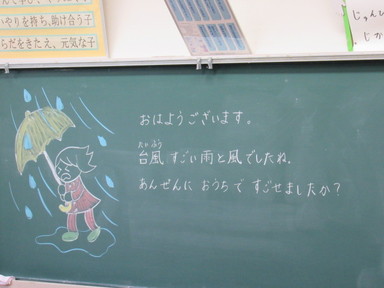 いやりを持ち、助け合う子
らだをきたえ、元気な子
じゅんび
じか
おはようございます。
たいふう
台風 すごい雨と風でしたね。
あんぜんに おうちで すごせましたか?